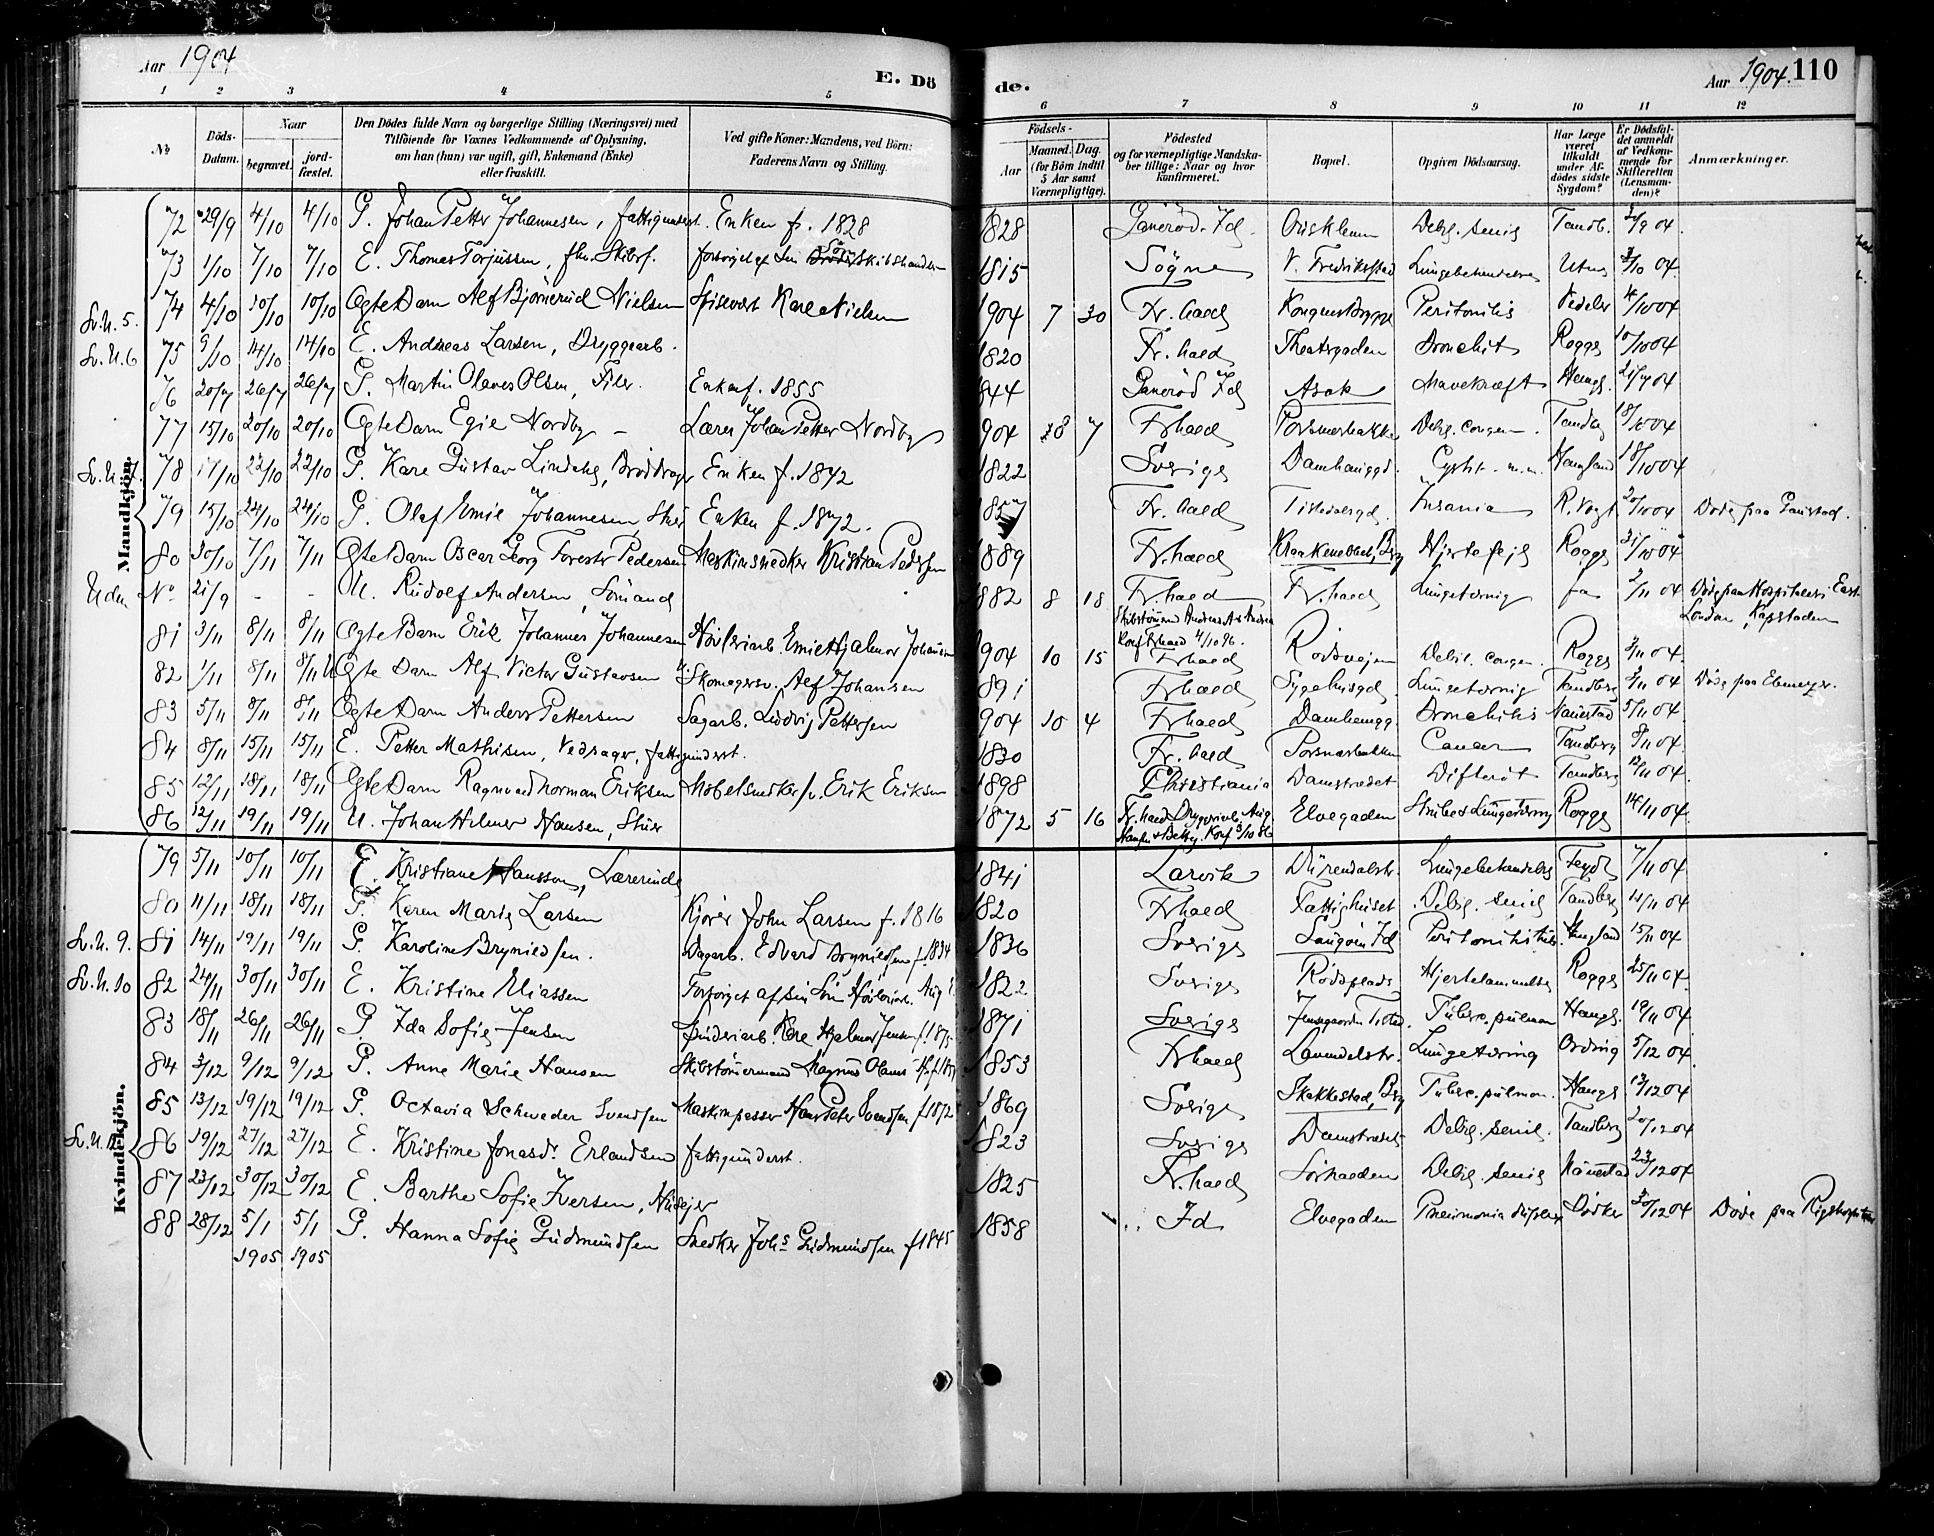 Aar 1904
E. Dö
de.
Aar 1904. 110
1 2 3 4 5 6 7 8 9 10 11 12
No
Döds-Datum.
Naar
begravet.
jord-fæstet.
Den Dödes fulde Navn og borgerlige Stilling (Næringsvei) med
Tilföiende for Voxnes Vedkommende af Oplysning,
om han (hun) var ugift, gift, Enkemand (Enke)
eller fraskilt.
Ved gifte Koner: Mandens, ved Börn:
Faderens Navn og Stilling.
Födsels-
Aar
Maaned. Dag.
(for Börn indtil
5 Aar samt
Værnepligtige).
Födested
og for værnepligtige Mandska-
ber tillige: Naar og hvor
konfirmeret.
Bopæl.
Opgiven Dödsaarsag.
Har Læge
været
tilkaldt
under Af-
dödes sidste
Sygdom?
Er Dödsfal-
det anmeldt
af Vedkom-
mende for
Skifteretten
(Lensman-
den)?
Anmærkninger.
Mandkjön.
72 29/9 4/10 4/10 G. Johan Petter Johannesen, fattigunderst. Enken f. 1828 1828 Ganeröd. Id. Debil. senil Tandb. 04
73 1/10 7/10 7/10 E. Thomas Torjussen, fhv. Skibsf. forsörget af sin Sön Skibshandler 1815 Sögne V. Fredrikstad Lungebetændelse 04
Sv. U. 5. 74 4/10 10/10 10/10 Ægte Barn Alf Björnerud Nielsen Spisevert Karl Nielsen 1904 7 30 Fr.hald Peritonitis 4/10 04
Sv. U. 6 75 9/10 14/10 14/10 E. Andreas Larsen, Bryggearb. 1820 Fr.hald Theatergaden Bronchit Rogge 10/10 04
76 20/7 26/7 26/7 G. Martin Olaves Olsen, Filer. Enken f. 1855 844 Ganeröd Id Asak Mavekræft 21/7 04
77 15/10 20/10 20/10 Ægte Barn Egil Nordby - Lærer Johan Petter Nordby 904 8 7 Frhald Porsnæsbakke Debil. congen. Tandbg 18/10 04
Sv. U. 7. 78 17/10 22/10 22/10 G. Karl Gustav Lindahl, Bröddrager Enken f. 1842 1822 Sverige Damhaugd. Cystit. m.m. Haugland 18/10 04
79 15/10 24/10 24/10 G. Olaf Emil Johannesen, Stuer Enken f. 1872. 1857 Fr.hald Tistedalsgd. Insania R. Vogt 20/10 04 Döde paa Gaustad.
80 30/10 7/11 7/11 Ægte Barn Oscar Georg Forester Pedersen Maskinsnedker Kristian Pedersen 1889 Fr.hald Hjertefeil Rogge 31/10 04
Uden No 21/9 - - U. Rudolf Andersen, Sömand 882 8 18 Fr.hald Fr.hald Lungetæring ja 2/11 04 Döde paa Hospitalet i East London, Kapstaden
Skibstömmermand Andreas Andersen
Konf Frhald 4/10 96.
81 3/11 8/11 8/11 Ægte Barn Erik Johannes Johannesen Hövleriarb. Emil Hjalmar Johansen 904 10 15 Frhald Rödsvejen Debil. congen. Rogge 3/11 04.
82 1/11 8/11 8/11 Ægte Barn Alf Victor Gustavsen Skomagersv. Alf Johansen 891 Frhald Sygehusgd. Lungetæring Tandberg 2/11 04 Döde paa Ebenezer.
83 5/11 8/11 8/11 Ægte Barn Anders Pettersen Sagarb. Ludvig Pettersen 904 10 4 Frhald Damhaugg Bronchitis Nauestad 5/11 04
84 8/11 15/11 15/11 E. Petter Mathisen, Vedsager, fattigunderst. 1830 Fr.hald Porsnæsbakken Cancer Tandberg 9/11 04.
85 12/11 18/11 18/11 Ægte Barn Ragnvald Norman Eriksen Möbelsnedkersv. Erik Eriksen 1898 Christiania Damstrædet Difterit Tandberg 12/11 04.
86 12/11 19/11 19/11 U. Johan Hilmer Hansen, Stuer 1872 5 16 Fr.hald Bryggeriarb. Aug. Hansen & Betty. Konf 3/10 86 Elvegaden Strube & Lungetæring Rogge 14/11 04.
Kvindekjön.
79 5/11 10/11 10/11 E. Kristiane Hansson, Lærerinde 1841 Larvik Dürendalstr. Lungebetændelse Feydt 7/11 04
80 11/11 18/11 18/11 G. Karen Marie Larsen Kjörer John Larsen f. 1816 1820 Frhald Fattighuset Debil. senil Tandberg 12/11 04
Sv. U. 9. 81 14/11 19/11 19/11 G. Karoline Brynildsen. Dagarb. Edvard Brynildsen f. 1834 1836 Sverige Id Haugland 15/11 04
Sv. U. 10 82 24/11 30/11 30/11 E. Kristine Eliassen Forsörget af sin Sön Hövleriarb. Aug E. 1822 Sverige Rödsplads Hjertelammelse Rogge 25/11 04.
83 18/11 26/11 26/11 G. Ida Sofie Jensen Karl Hjalmar Jensen f. 1875 1871 Sverige Tuberc. pulmon Haugl. 19/11 04
84 3/12 9/12 9/12 G. Anne Marie Hansen Skibstömermand Magnus Olaus 1853 Frhald Lavendelstr. Lungetæring Ording 5/12 04
85 13/12 19/12 19/12 G. Octavia Schweder Svendsen Maskinpasser Hans Peter Svendsen f. 1872 1869 Sverige Skakkestad, Brg Tuberc. pulmon. Haugl 13/12 04
Sv. U. 12. 86 19/12 27/12 27/12 E. Kristine Jonasdr. Erlandsen fattigunderst. 823 Sverige Damstrædet Debil. senil. Tandberg 20/12 04
87 23/12 30/12 30/12 E. Barthe Sofie Iversen, Huseier 1825 Fr.hald Sörhalden Debil. senil Nauestad 23/12 04
88 28/12 5/1 5/1 G. Hanna Sofie Gudmundsen Snedker Johs Gudmundsen f. 1845 1858 Id Elvegaden Pneumonia duplex 30/12 04 Döde paa Rigshospitalet
1905 1905